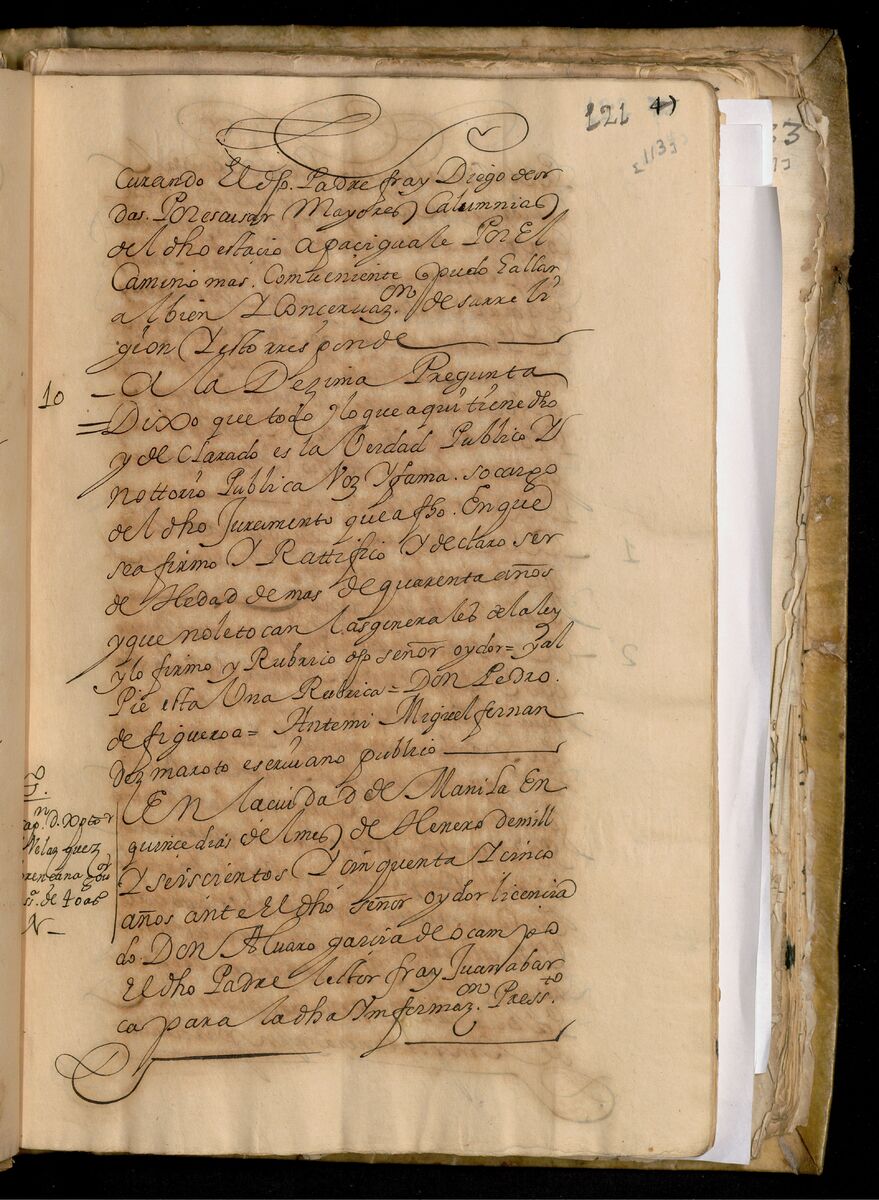 121 4)
curando El dho. Padre fray Diego de or
das. Por escusar Mayores Calumnias
del dho estacio apaciguale Por El
Camino mas. Comveniente q pudo hallar
al bien Y Concervazon. de su rreli
gion Y esto rresponde
10 — A la Dezima Pregunta
= Dixo que todo lo que aqui tiene dho
y de Clarado es la Verdad Publico Y
nottorio Publica Voz Y fama. so cargo
del dho Juramento que a fho. En que
se a firmo Y Rattifico Y declaro ser
de Hedad de mas de quarenta años
y que no le tocan las generales de la ley
y lo firmo y Rubrico dho señor oydor = y al
Pie esta Una Rubrica = Don Pedro.
de figueroa = Antemi Miguel fernan
dez maroto escrivano publico
En la ciudad de Manila En
quince dias del mes de Henero de mill
Y seiscientos Y cinquenta Y cinco
años ante El dho señor oydor licencia
do. Don Alvaro garcia de ocampo
El dho Padre lector fray Juan abar
ca para la dha Ynformazon. Pressto.
Velazquez
de 40 as